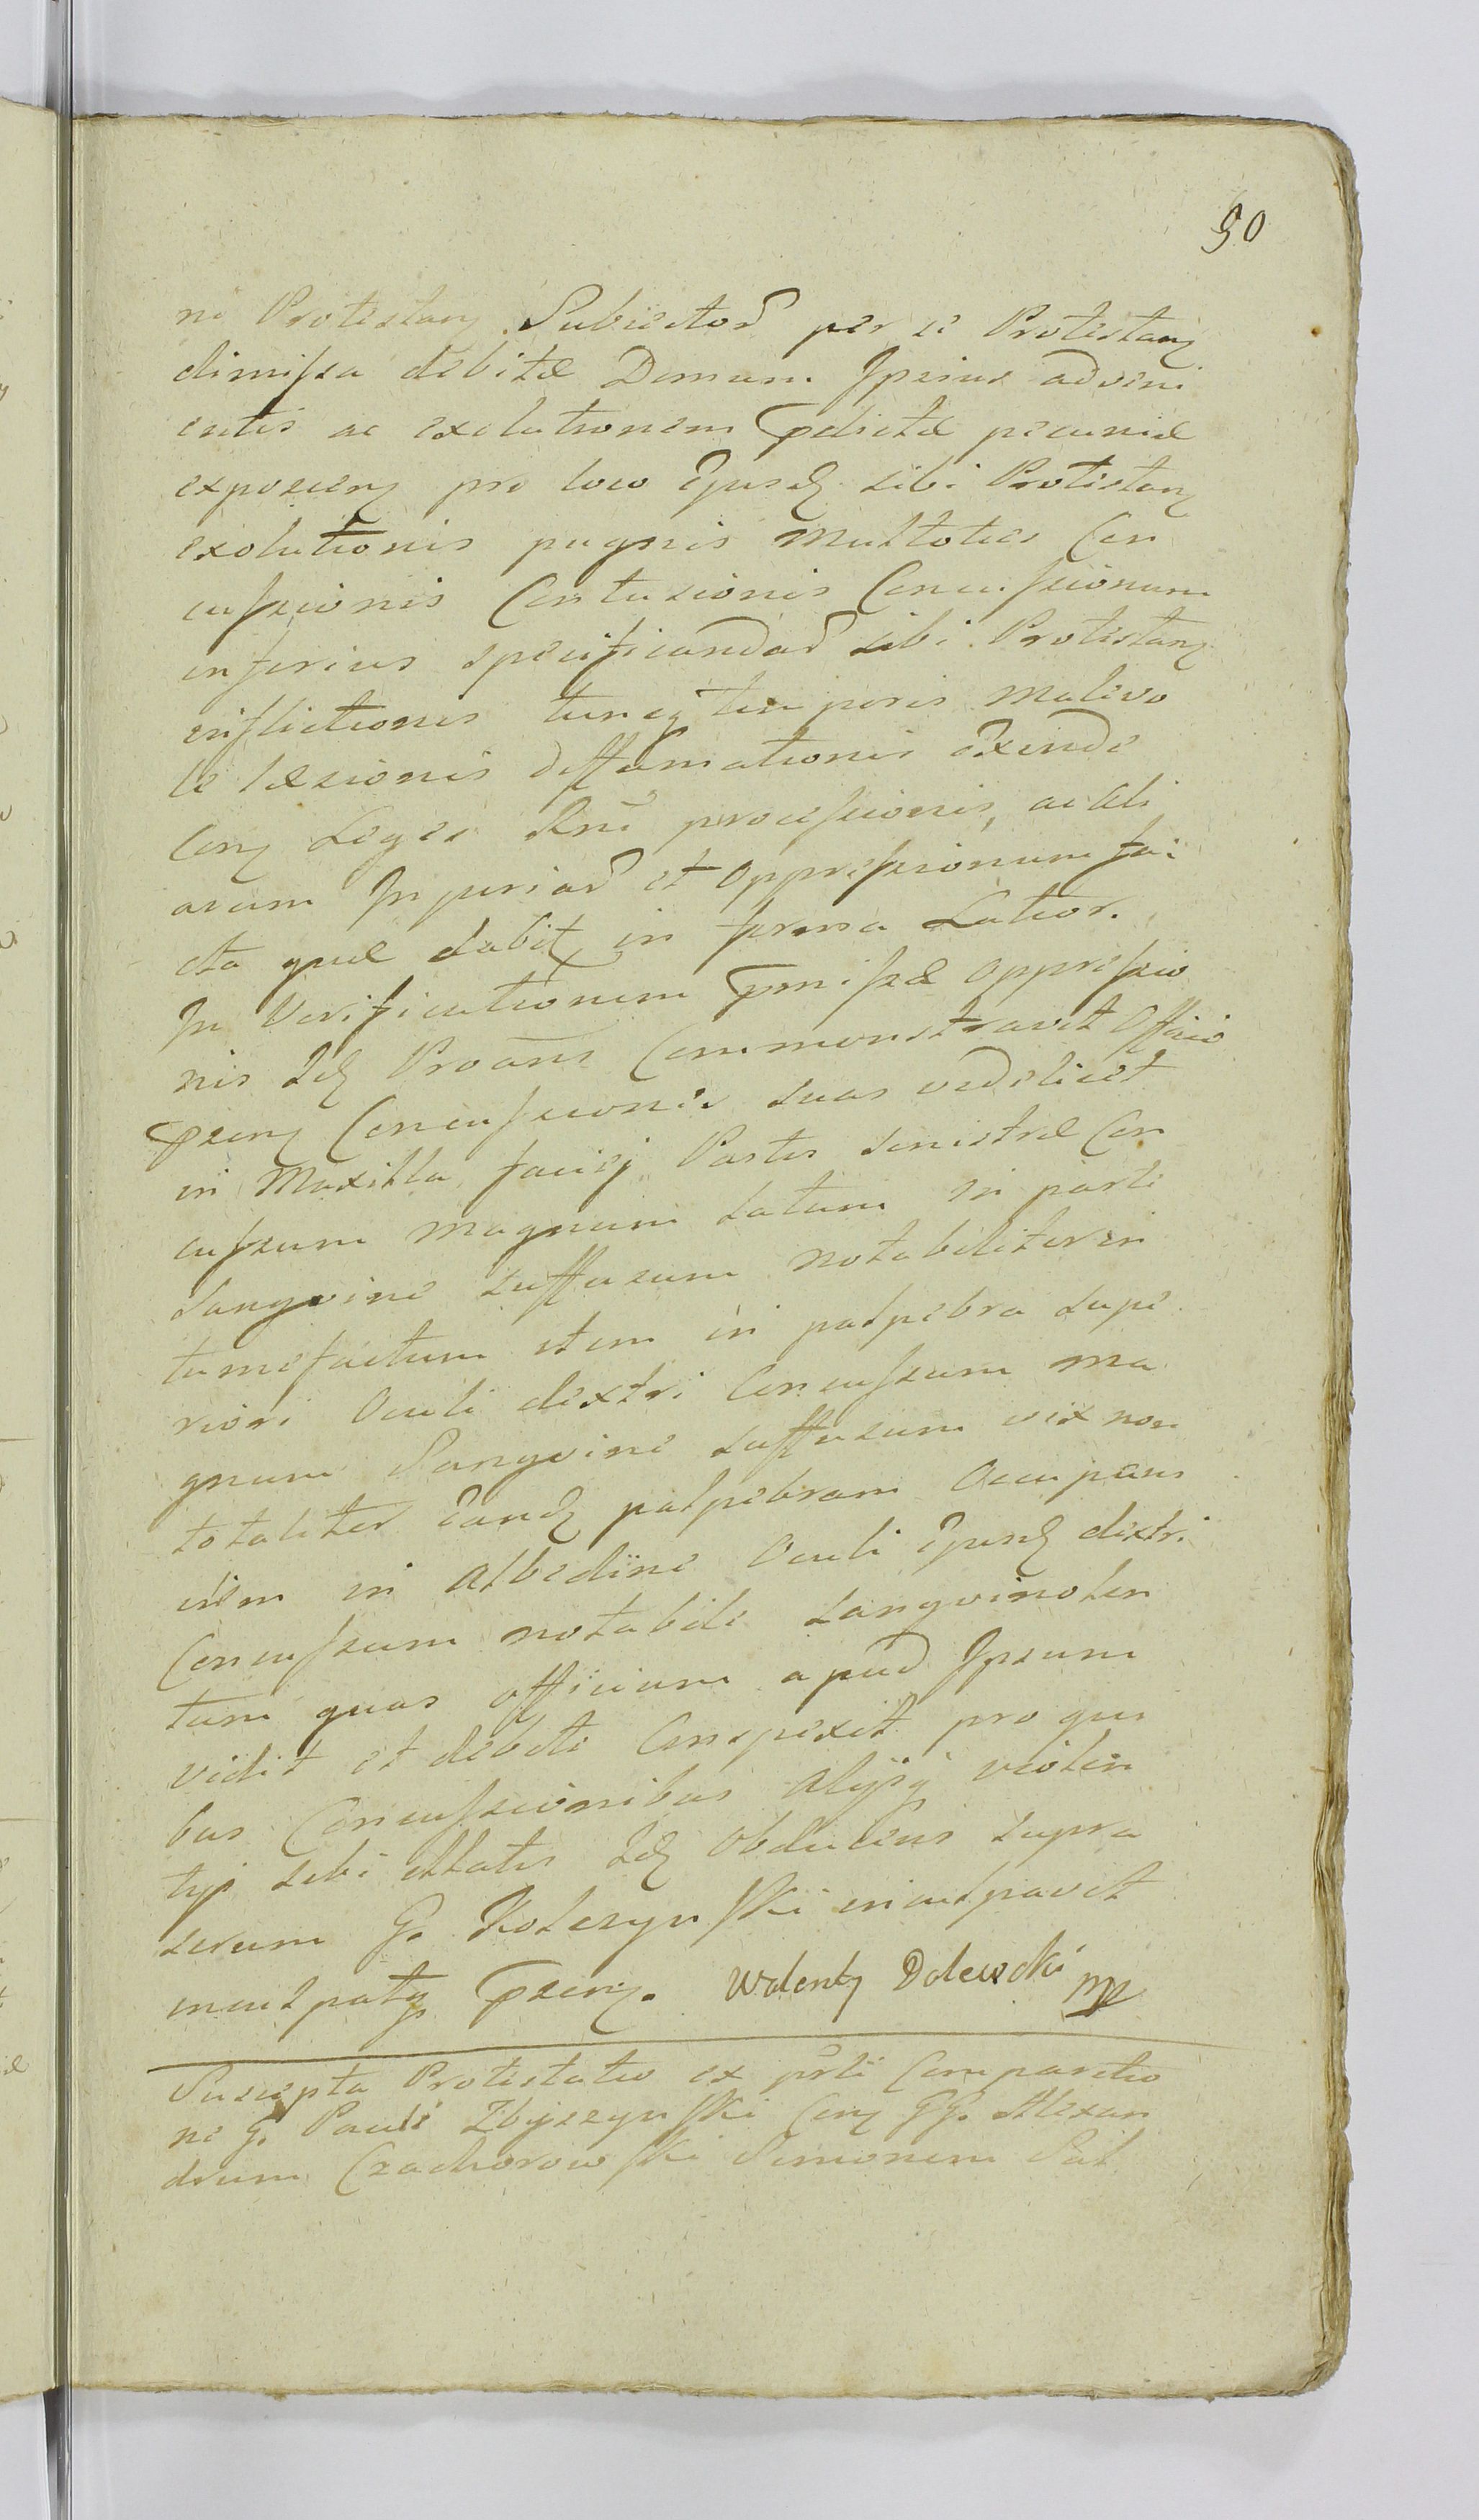 90
ne Protestanꝫ Subiectoꝝ per se Protestanꝫ
dimissa debitæ Domum Ipsius adveni
entis ac exolutionem p̃dictæ pecuniæ
exposcenꝫ pro loco ejusdꝫ sibi Protestanꝫ
exolutionis pugnis multoties Con
cussionis Contusionis Concussionum
inferius specificandaꝝ sibi Protestanꝫ
inflictionis tuncqꝫ temporis malevo
le læsionis diffamationis exinde
Conꝫ Leges Rni processionis, ac ali
arum Injuriaꝝ et oppressionum fa
cta quæ dabitꝫ in forma Latior.
In Verificationem p̃missæ oppressio
nis Idꝫ Proãns Commonstravit Officio
p̃senꝫ Concussiones suas videlicet
in Maxilla faciej Partis sinistræ Con
cussum magnum latum in parte
Sangvine suffusum notabiliter in
tumefactum item in palpebra supe
riori Oculi dextri Concussum ma
gnum Sangvine suffusum vix non
totaliter eandꝫ palpebram Occupans
item in albedine Oculi ejusdꝫ dextri
Concussum notabile sangvinolen
tum quas officium apud Ipsum
vidit et debite Conspexit pro qui
bus Concussionibus alijsqꝫ violen
tijs sibi illatis Idꝫ Obducens supra
scrum G. Kolczynski inculpavit
inculpatqꝫ p̃senꝫ. Walenty Dolewski mp
Suscepta Protestatio ex pr̃li Comparitio
ne G. Pauli Zbyszynski Conꝫ GG. Alexan
drum Czachorowski Simonem Sul